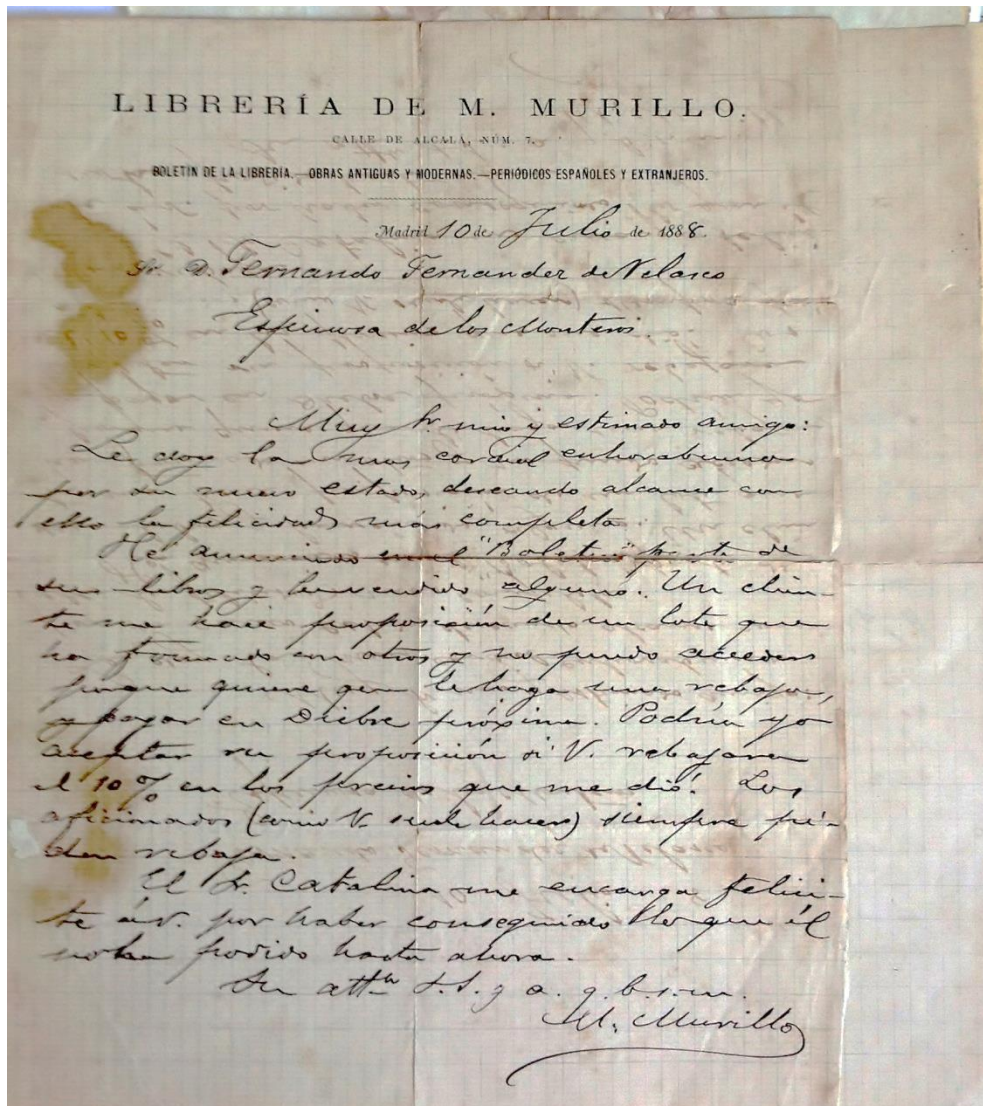 LIBRERÍA DE M. MURILLO.
CALLE DE ALCALÁ, NÚM. 7.
BOLETIN DE LA LIBRERIA.—OBRAS ANTIGUAS Y MODERNAS.—PERIÓDICOS ESPAÑOLES Y EXTRANJEROS.
Madrid 10 de Julio de 1888.
Sr. D. Fernando Fernandez de Velasco
Espinosa de los Monteros.
Muy Sr. mio y estimado amigo:
Le doy la mas cordial enhorabuena
por su nuevo estado, deseando alcance con
ello la felicidad más completa.
He anunciado en el "Boletin" parte de
sus libros y he vendido alguno. Un clien-
te me hace proposición de un lote que
ha formado con otros y no puedo acceder
porque quiere que le haga una rebaja,
y pagar en Dicbre próximo. Podría yo
aceptar su proposición si V. rebajara
el 10 % en los precios que me dió. Los
aficionados (como V. suele hacer) siempre pi-
den rebaja.
El Sr. Catalina me encarga felici-
te á V. por haber conseguido lo que él
no ha podido hasta ahora.
Su atto. S. S. y a. q. b. s. m.
M. Murillo